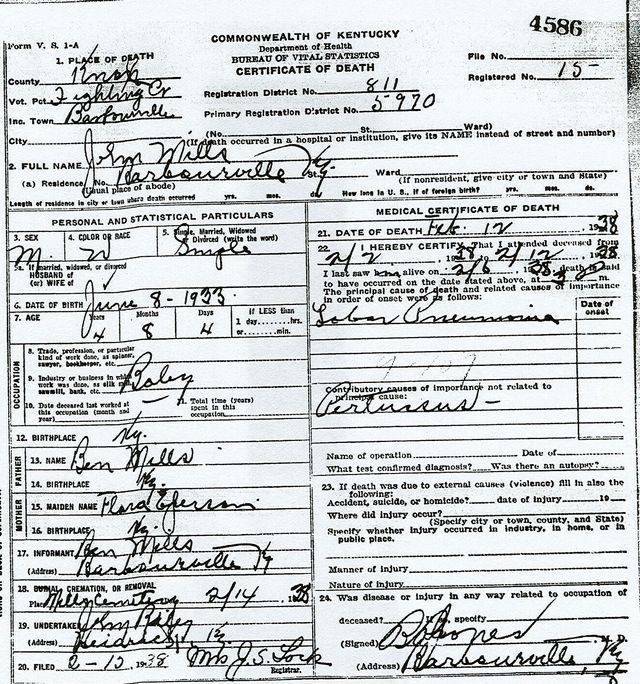 4586
COMMONWEALTH OF KENTUCKY
Form V. S. 1-A
Department of Health
BUREAU OF VITAL STATISTICS
CERTIFICATE OF DEATH
File No.
Registered No. 15-
1. PLACE OF DEATH
County Knox
Vot. Pct. Fighting Cr
Inc. Town Barbourville
Registration District No. 811
Primary Registration District No. 5970
City
(No. St. Ward)
(If death occurred in a hospital or institution, give its NAME instead of street and number)
2. FULL NAME John Mills
(a) Residence. No. Barbourville Ky St., Ward
(Usual place of abode)
(If nonresident, give city or town and State)
Length of residence in city or town where death occurred yrs. mos. ds. How long in U. S., if of foreign birth? yrs. mos. ds.
PERSONAL AND STATISTICAL PARTICULARS
3. SEX
M.
4. COLOR OR RACE
W
5. Single, Married, Widowed
or Divorced (write the word)
Single
5a. If married, widowed, or divorced
HUSBAND of
(or) WIFE of
6. DATE OF BIRTH June 8-1933
7. AGE Years Months Days If LESS than
4 8 4
1 day........hrs.
or........min.
OCCUPATION
8. Trade, profession, or particular
kind of work done, as spinner,
sawyer, bookkeeper, etc.
9. Industry or business in which
work was done, as silk mill,
sawmill, bank, etc.
Baby
10. Date deceased last worked at
this occupation (month and
year)
11. Total time (years)
spent in this
occupation
12. BIRTHPLACE Ky.
FATHER
13. NAME Ben Mills
14. BIRTHPLACE Ky.
MOTHER
15. MAIDEN NAME Flora
16. BIRTHPLACE Ky.
17. INFORMANT Ben Mills
(Address) Barbourville Ky
18. BURIAL, CREMATION, OR REMOVAL
Place Mills Cemetery 2/14 1938
19. UNDERTAKER John
(Address) Ky.
20. FILED 2-12 1938 Mrs J. S. Lock
Registrar.
MEDICAL CERTIFICATE OF DEATH
21. DATE OF DEATH Feb. 12 1938
22. I HEREBY CERTIFY, That I attended deceased from
2/2 1938 2/12 1938
I last saw him alive on 2/6 1938 death is said
to have occurred on the date stated above, at m.
The principal cause of death and related causes of importance
in order of onset were as follows:
Date of
onset
Lobar Pneumonia
Contributory causes of importance not related to
principal cause:
Pertussus -
Name of operation Date of
What test confirmed diagnosis? Was there an autopsy?
23. If death was due to external causes (violence) fill in also the
following:
Accident, suicide, or homicide? date of injury 19
Where did injury occur?
(Specify city or town, county, and State)
Specify whether injury occurred in industry, in home, or in
public place.
Manner of injury
Nature of injury
24. Was disease or injury in any way related to occupation of
deceased? If so, specify
(Signed) M. D.
(Address) Barbourville, Ky